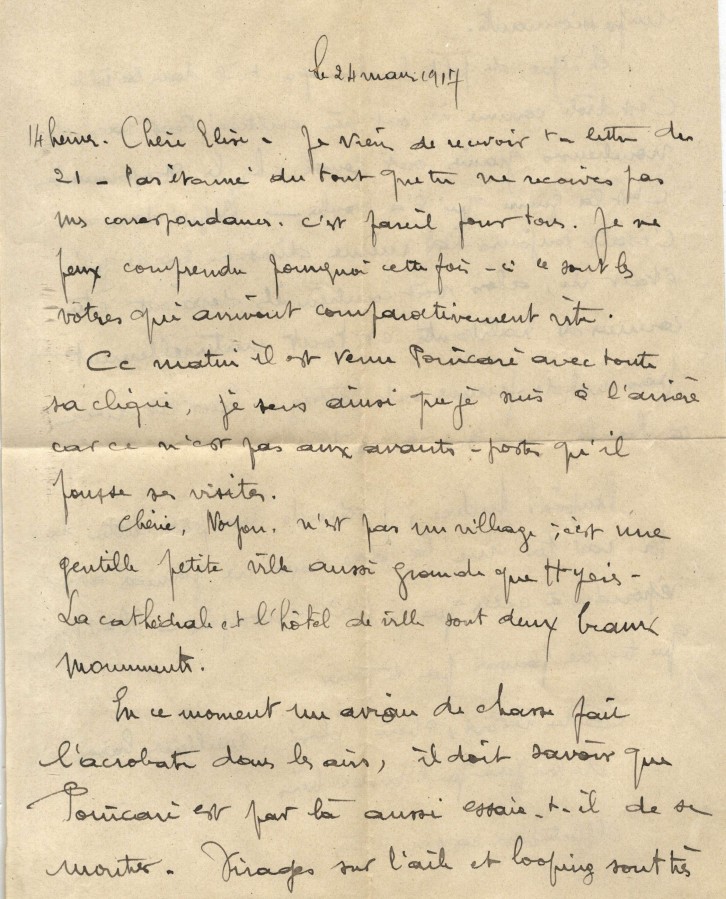 le 24 mars 1917
14 heures. Chère Elise - Je viens de recevoir ta lettre du
21 - Pas étonné du tout que tu ne reçoives pas
mes correspondances. c'est pareil pour tous. Je ne
peux comprendre pourquoi cette fois-ci ce sont les
vôtres qui arrivent comparativement vite.
Ce matin il est venu Poincaré avec toute
sa clique, je sens ainsi que je suis à l'arrière
car ce n'est pas aux avants-postes qu'il
pousse ses visites.
Chérie, Noyon n'est pas un village ; c'est une
gentille petite ville aussi grande que Hyères -
La cathédrale et l'hôtel de ville sont deux beaux
monuments.
En ce moment un avion de chasse fait
l'acrobate dans les airs, il doit savoir que
Poincaré est par là aussi essaie-t-il de se
montrer. Virages sur l'aile et looping sont très